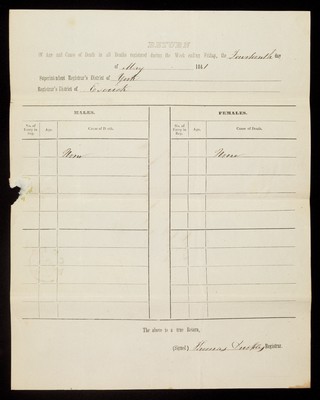 RETURN
Of Age and Cause of Death in all Deaths registered during the Week ending Friday, the Fourteenth day
of May 1841
Superintendent Registrar's District of York
Registrar's District of Escrick
MALES. FEMALES.
No. of Entry in Reg. Age. Cause of Death. No. of Entry in Reg. Age. Cause of Death.
None None
The above is a true Return,
(Signed) Thomas Registrar.